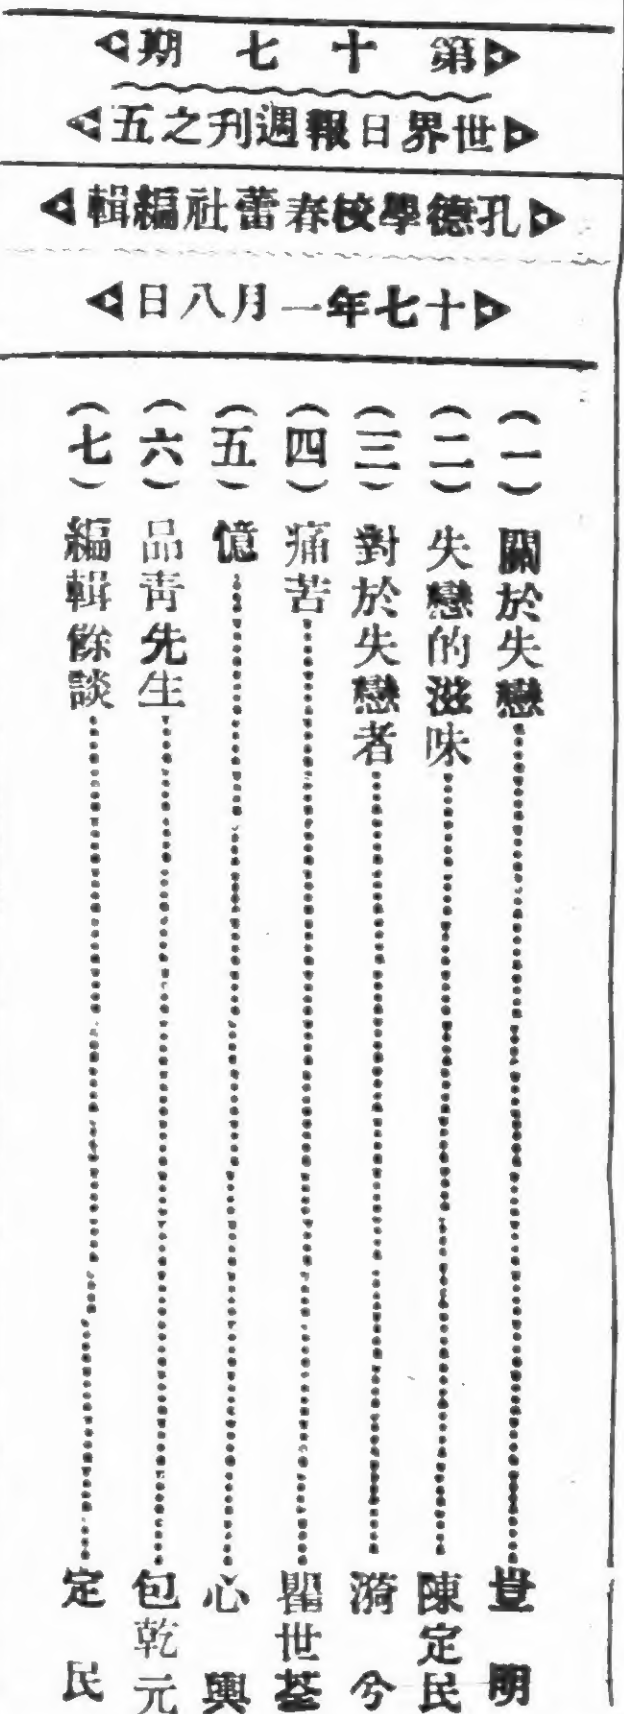 第十七期
世界日報週刊之五
孔德學校春蕾社編輯
十七年一月八日
(一)關於失戀……豈明
(二)失戀的滋味……陳定民
(三)對於失戀者……漪兮
(四)痛苦……瞿世荃
(五)憶……心興
(六)品青先生……包乾元
(七)編輯餘談……定民